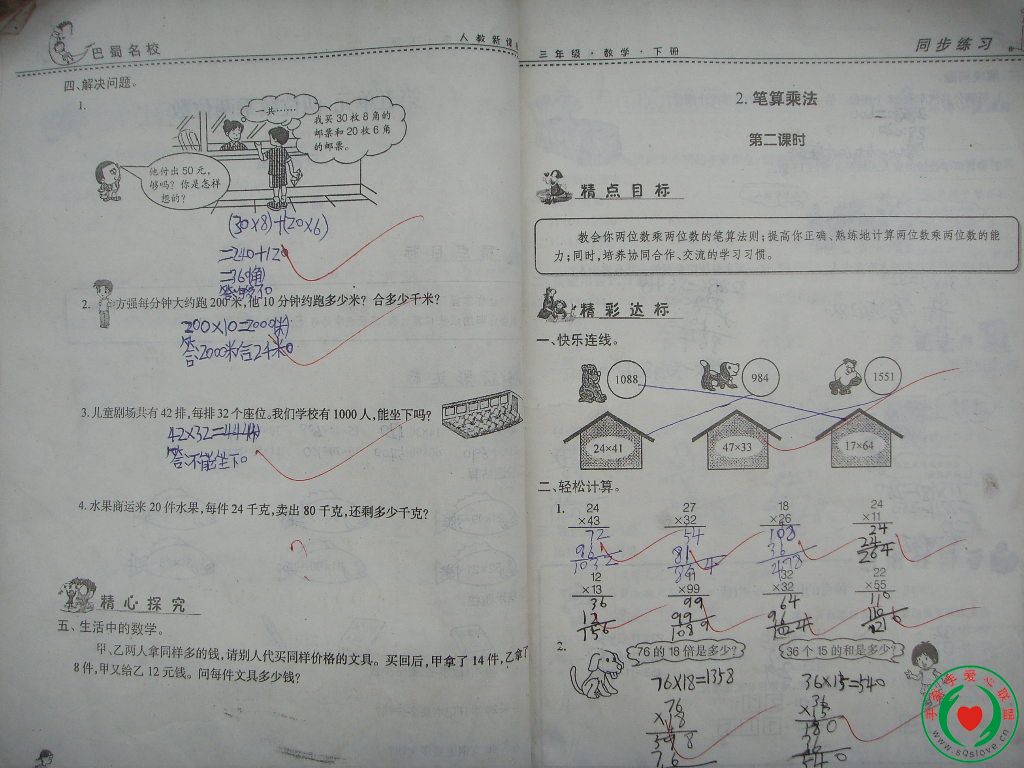 巴蜀名校
人教新课
四、解决问题。
1.
一共……
我买30枚8角的
邮票和20枚6角
的邮票。
他付出50元，
够吗？你是怎样
想的？
(30×8)+(20×6)
=240+120
=360(角)
2. 方强每分钟大约跑200米，他10分钟约跑多少米？合多少千米？
200×10=2000(米)
答:2000米合2千米。
3. 儿童剧场共有42排，每排32个座位。我们学校有1000人，能坐下吗？
答:不能坐下。
4. 水果商运来20件水果，每件24千克，卖出80千克，还剩多少千克？
?
精心探究
五、生活中的数学。
甲、乙两人拿同样多的钱，请别人代买同样价格的文具。买回后，甲拿了14件，乙拿了
8件，甲又给乙12元钱。问每件文具多少钱？
三年级·数学·下册
同步练习
2. 笔算乘法
第二课时
精点目标
教会你两位数乘两位数的笔算法则；提高你正确、熟练地计算两位数乘两位数的能
力；同时，培养协同合作、交流的学习习惯。
精彩达标
一、快乐连线。
1088 984 1551
24×41 47×33 17×64
二、轻松计算。
1. 24 27 18 24
×43 ×32 ×26 ×11
72 54 108 24
96 81 36 24
1032 864 264
12 11 32 22
×13 ×99 ×32 ×55
36 99 64 110
12 99 96 110
156 1089
2. 76的18倍是多少？ 36个15的和是多少？
76×18=1358 36×15=540
76 36
×18 ×15
180
76 36
540
手拿手爱心联盟
www.sqslove.cn